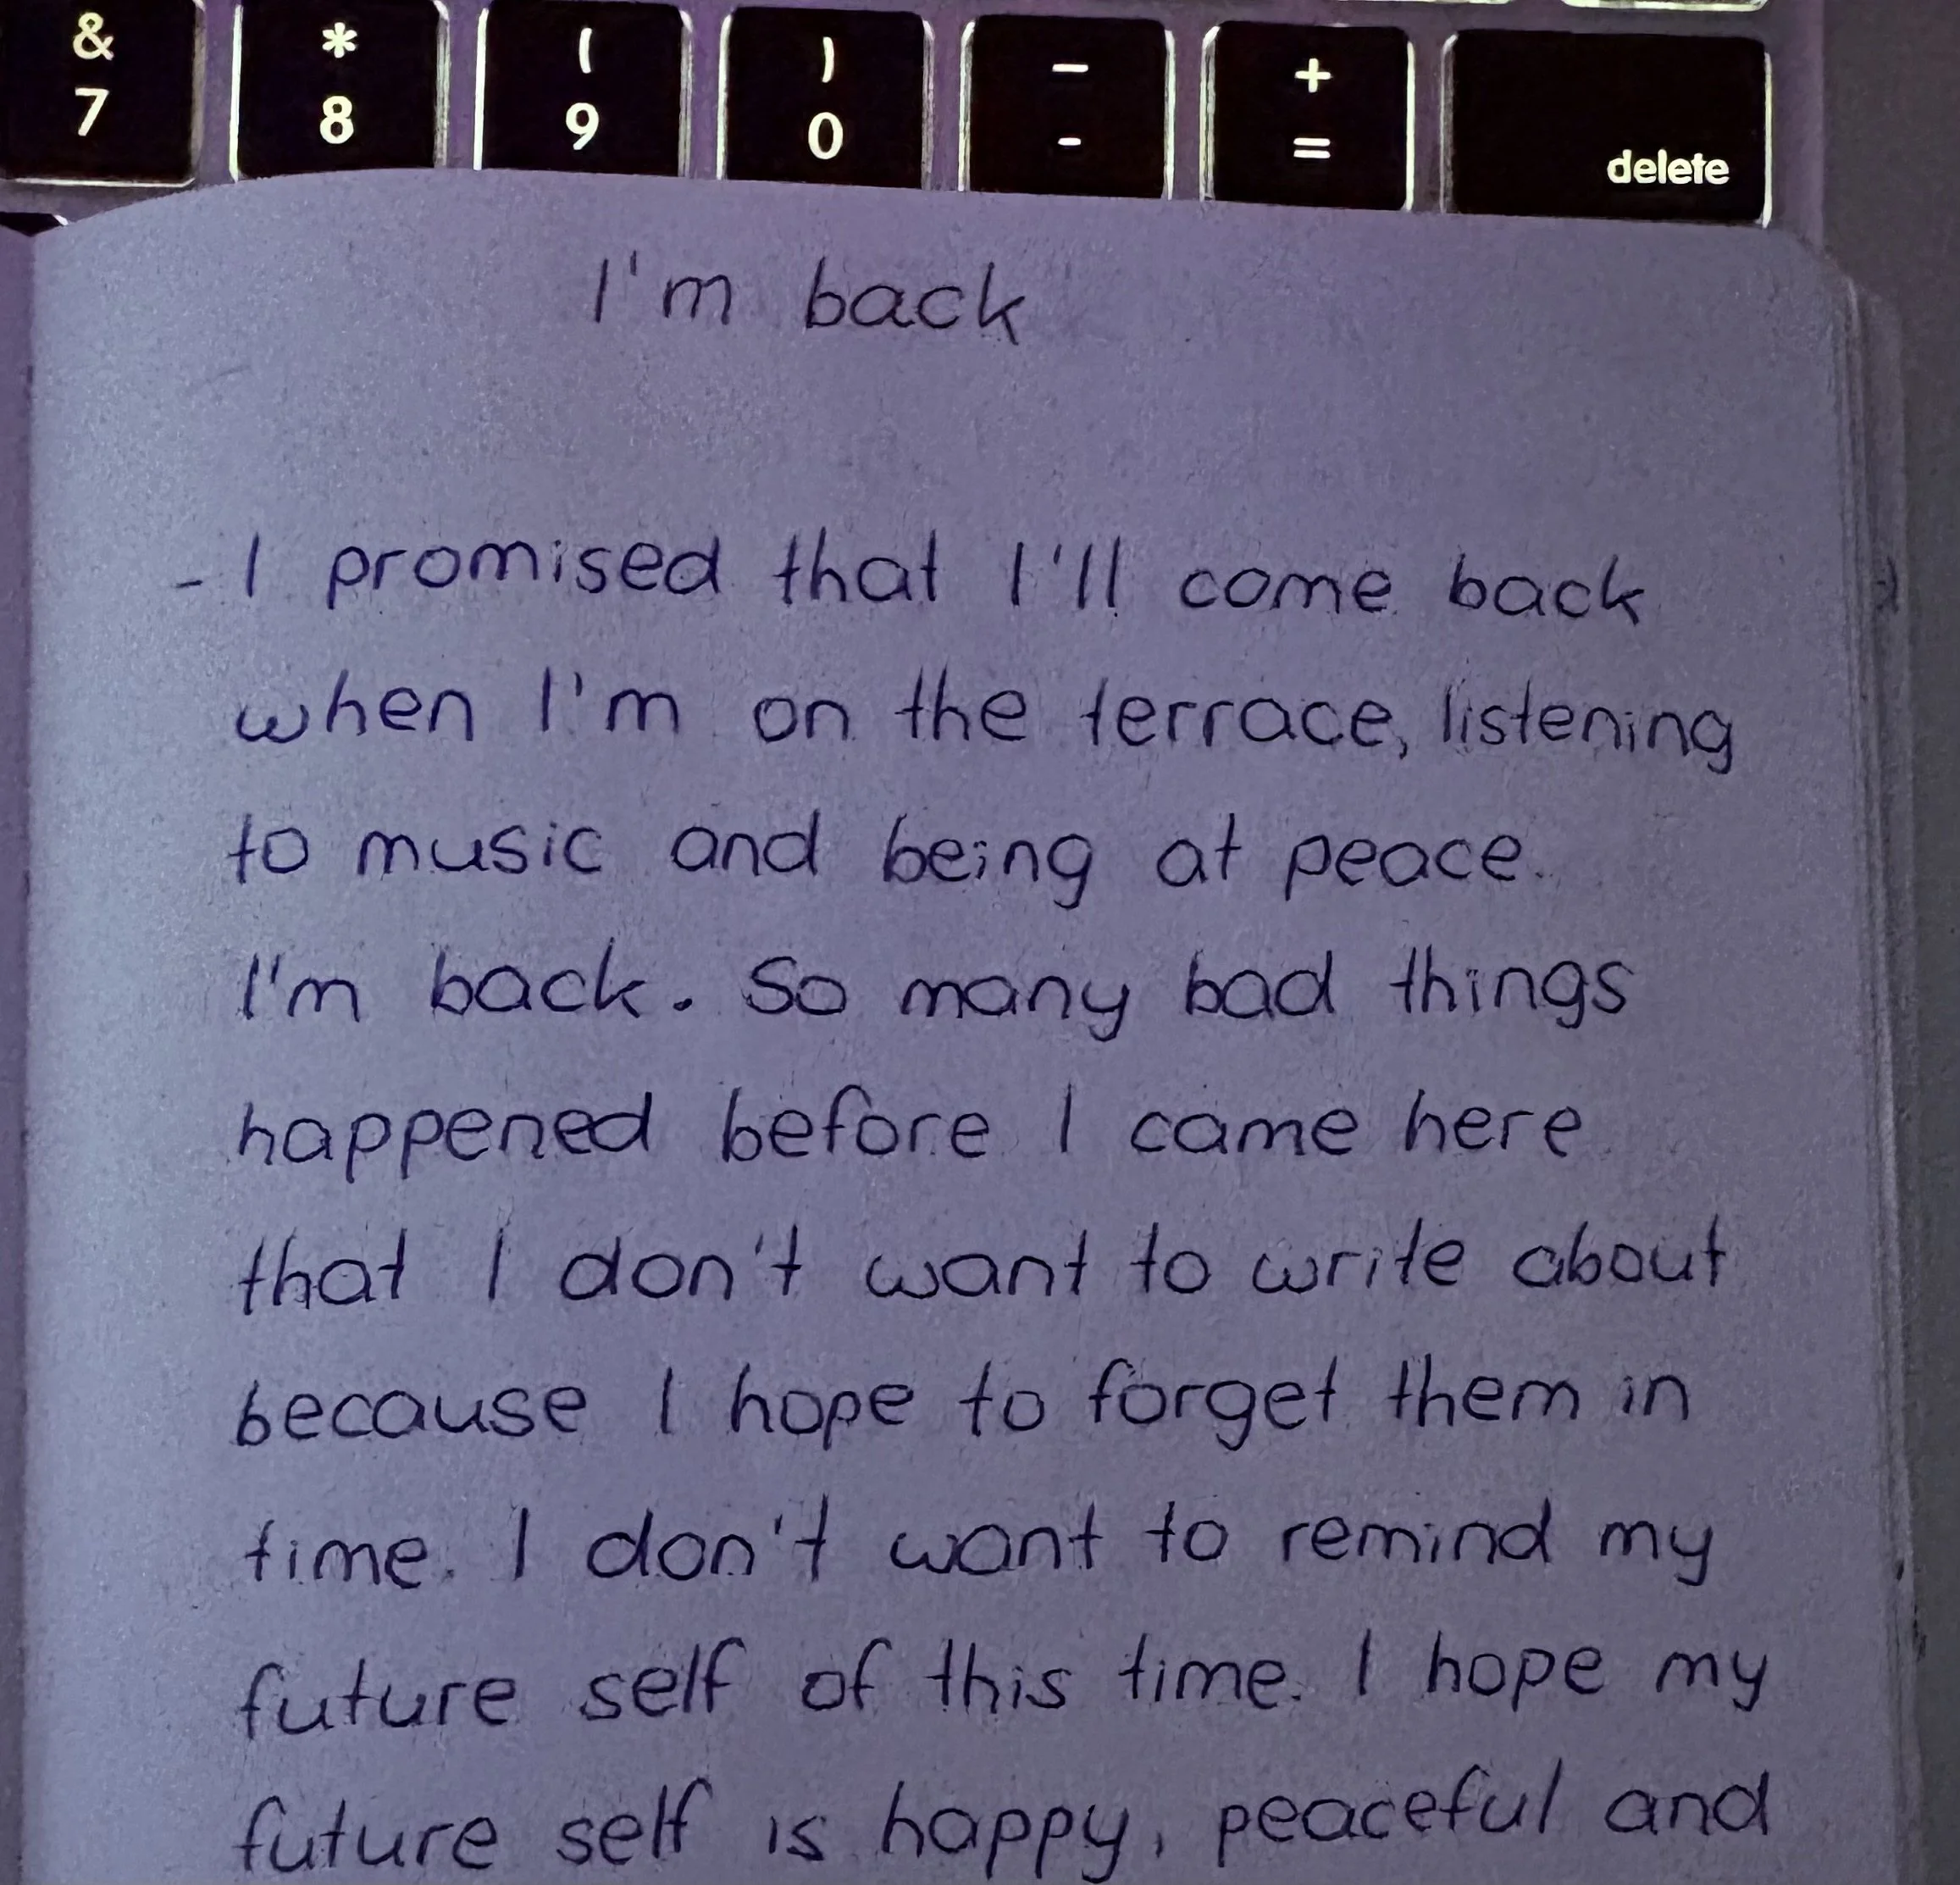 & * ( ) _ +
7 8 9 0 - = delete
I'm back
- I promised that I'll come back
when I'm on the terrace, listening
to music and being at peace.
I'm back. So many bad things
happened before I came here
that I don't want to write about
because I hope to forget them in
time. I don't want to remind my
future self of this time. I hope my
future self is happy, peaceful and